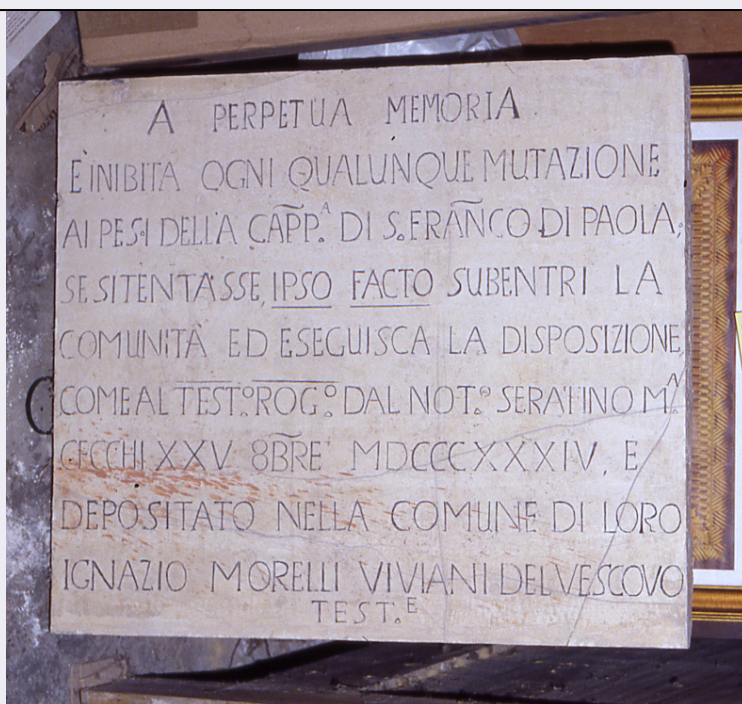 A PERPETUA MEMORIA
E' INIBITA OGNI QUALUNQUE MUTAZIONE
AI PESI DELLA CAPP.A DI S. FRANCO DI PAOLA;
SE SI TENTASSE, IPSO FACTO SUBENTRI LA
COMUNITÀ ED ESEGUISCA LA DISPOSIZIONE,
COME AL TEST.O ROG.O DAL NOT.O SERAFINO M.A
CECCHI XXV 8BRE MDCCCXXXIV, E
DEPOSITATO NELLA COMUNE DI LORO
IGNAZIO MORELLI VIVIANI DEL VESCOVO
TEST.E